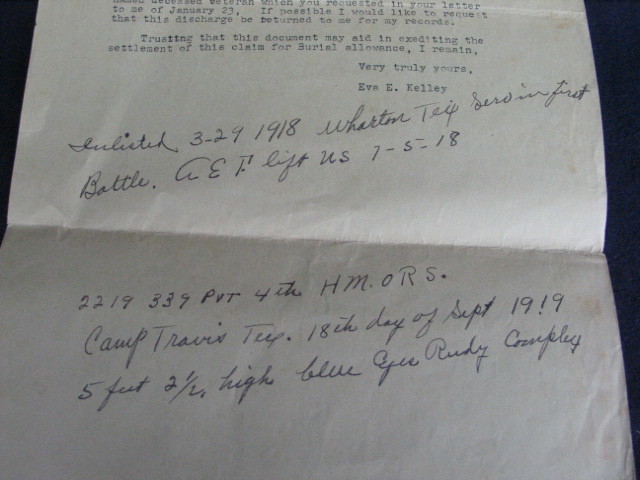 named deceased veteran which you requested in your letter
to me of January 23. If possible I would like to request
that this discharge be beturned to me for my records.
Trusitng that this document may aid in exediting the
settlement of this claim for Burial allowance, I remain,
Very truly yours,
Eva E. Kelley
Enlisted 3-29 1918 Wharton Tex Serv in first
Battle. A E F. lift US 7-5-18
2219 339 Pvt 4th HM. O R S.
Camp Travis Tex. 18th day of Sept 19!9
5 feet 2 1/2, high blue Eyes Rudy Complex